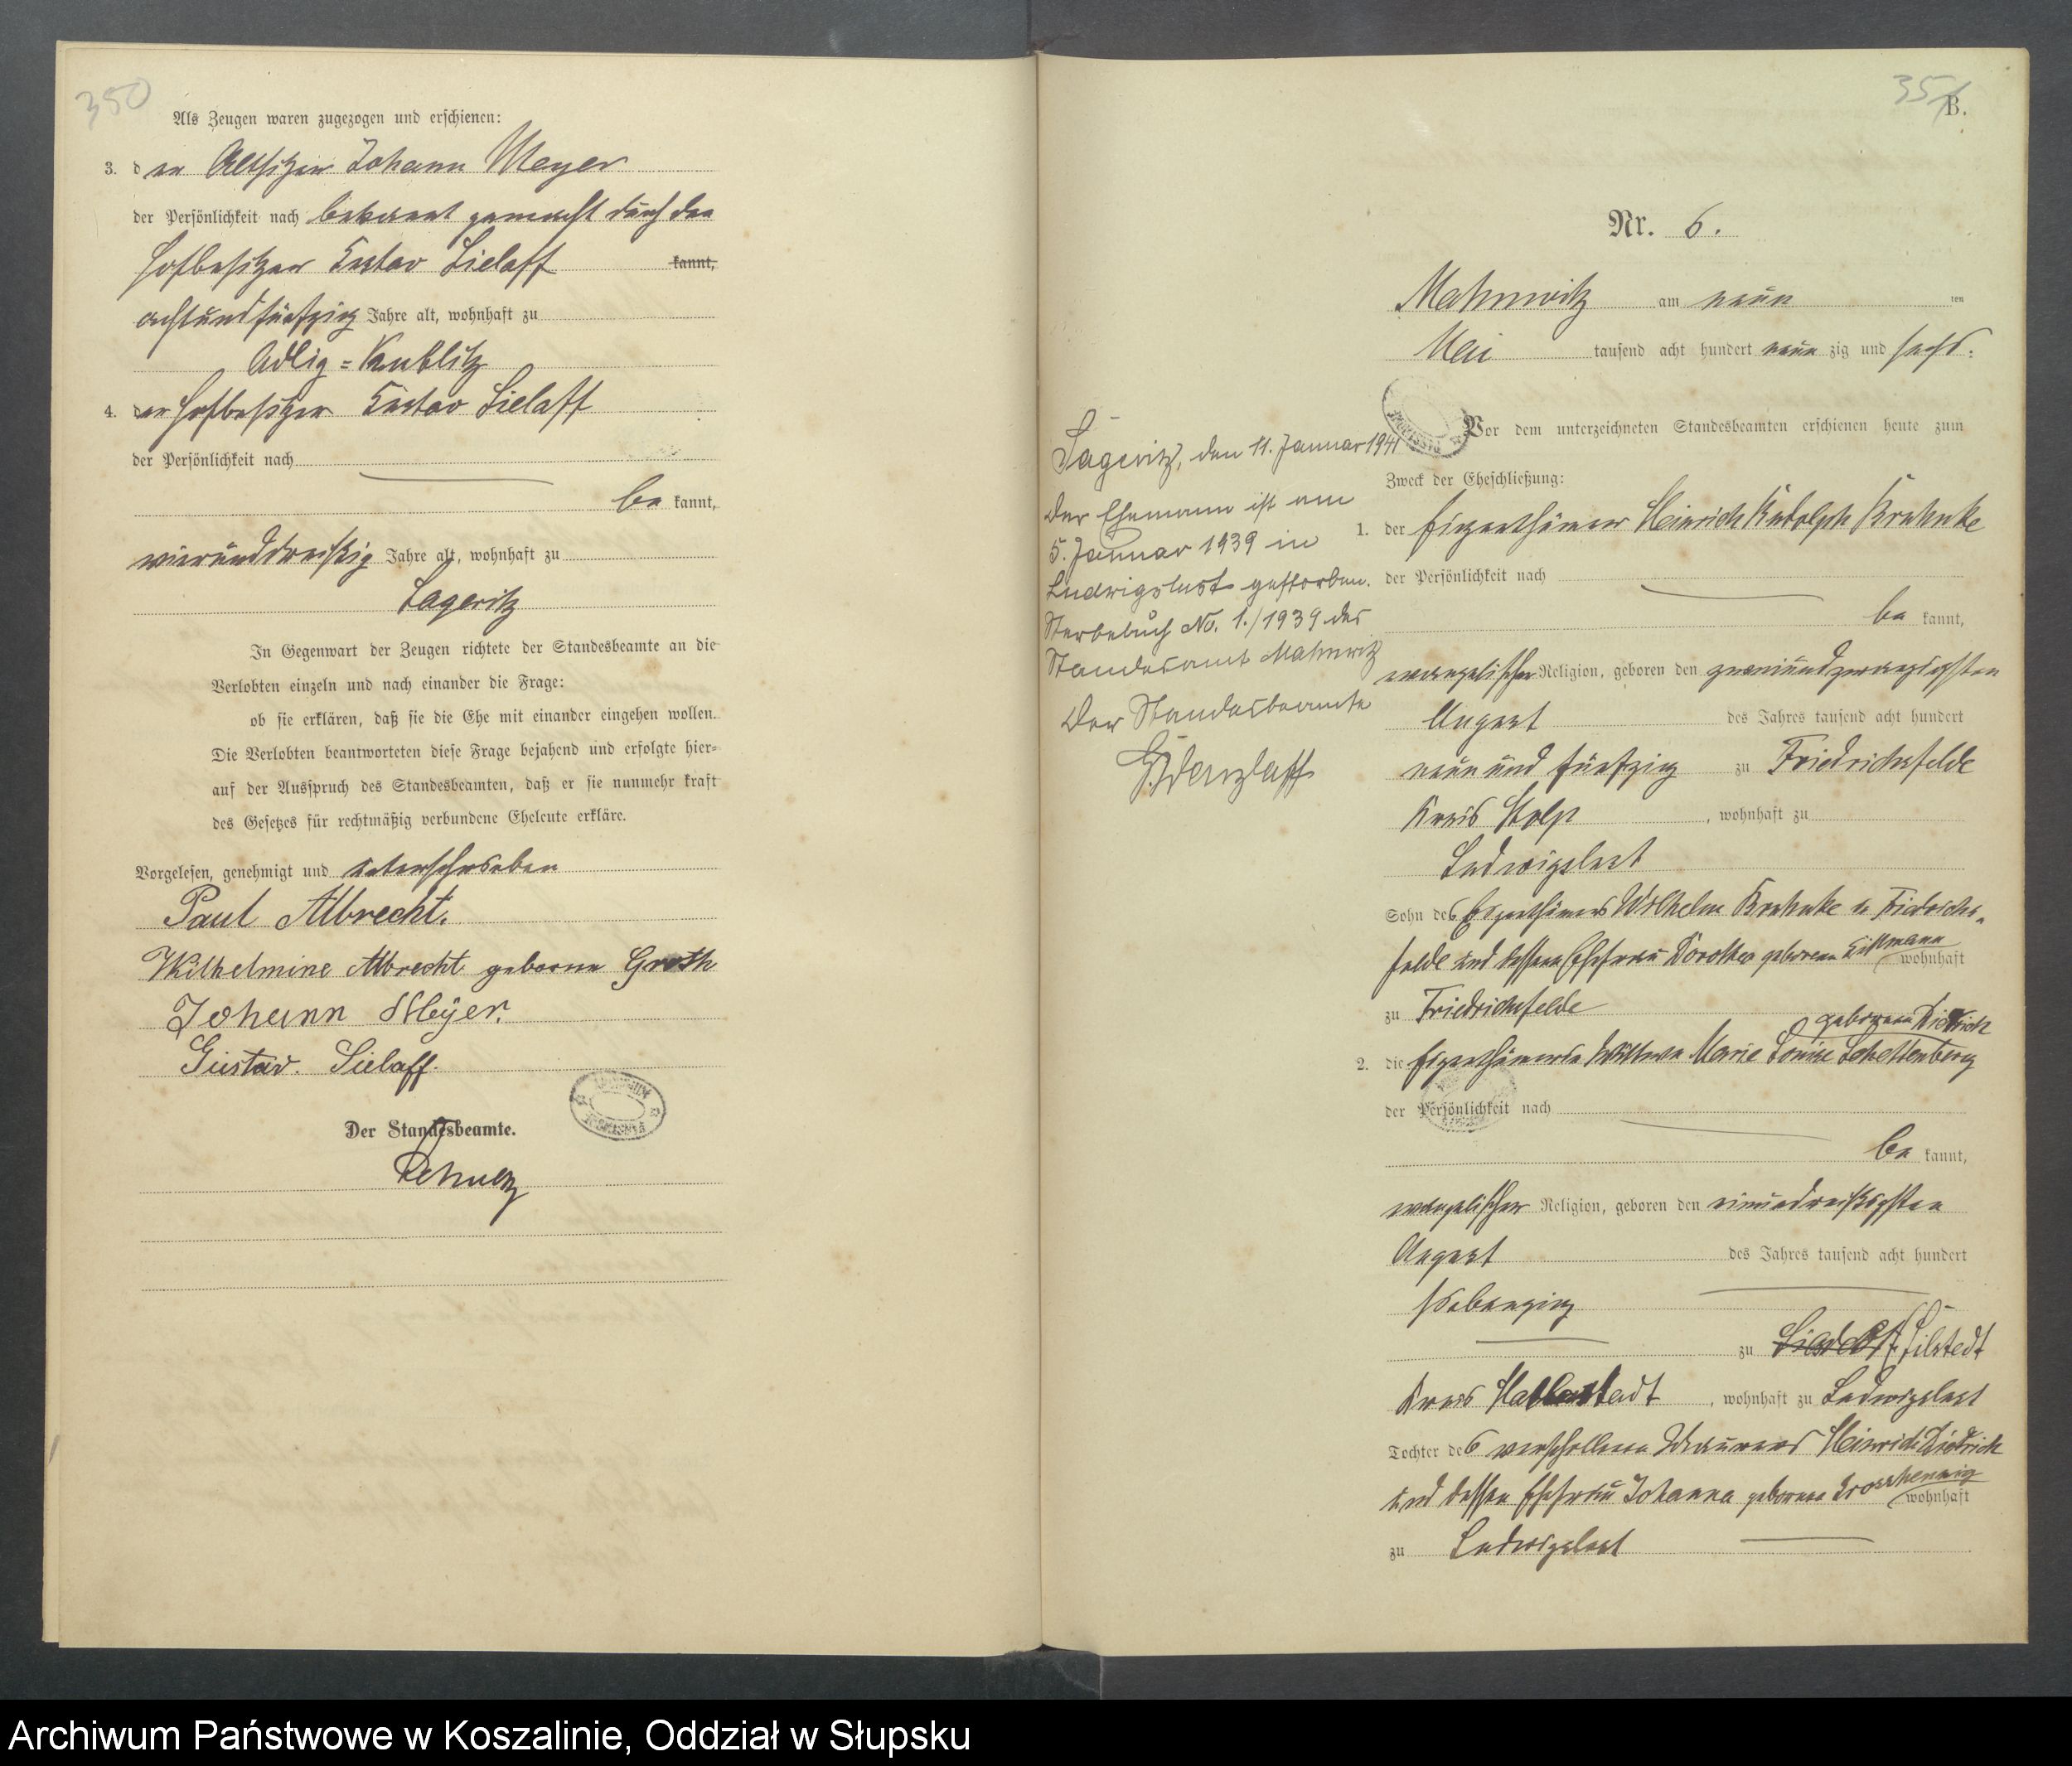 350
Als Zeugen waren zugezogen und erschienen:
3. der Altsitzer Johann Meyer
der Persönlichkeit nach bekannt gemacht durch den
Hofbesitzer Gustav Sielaff kannt,
achtundfünfzig Jahre alt, wohnhaft zu
Adlig=Kublitz
4. der Hofbesitzer Gustav Sielaff
der Persönlichkeit nach
be kannt,
vierunddreißig Jahre alt, wohnhaft zu
Lageritz
In Gegenwart der Zeugen richtete der Standesbeamte an die
Verlobten einzeln und nach einander die Frage:
ob sie erklären, daß sie die Ehe mit einander eingehen wollen.
Die Verlobten beantworteten diese Frage bejahend und erfolgte hier=
auf der Ausspruch des Standesbeamten, daß er sie nunmehr kraft
des Gesetzes für rechtmäßig verbundene Eheleute erkläre.
Vorgelesen, genehmigt und unterschrieben
Paul Albrecht.
Wilhelmine Albrecht geborne Groth
Johann Meÿer.
Gustav. Sielaff.
Der Standesbeamte.
351
B.
Nr. 6.
Mahnwitz am neun ten
Mai tausend acht hundert neun zig und sechs:
Vor dem unterzeichneten Standesbeamten erschienen heute zum
Zweck der Eheschließung:
1. der Eigenthümer Heinrich Rudolph Krahnke
der Persönlichkeit nach
be kannt,
evangelischer Religion, geboren den zweiundzwanzigsten
August des Jahres tausend acht hundert
neun und fünfzig zu Friedrichsfelde
Kreis Stolp, wohnhaft zu
Ludwigslust
Sohn des Eigenthümers Wilhelm Krahnke zu Friedrichs=
felde und dessen Ehefrau Dorothea geborenen
wohnhaft
zu Friedrichsfelde
geborene Dietrich
2. die Eigenthümerin Wittwe Marie Louise Schottenberg
der Persönlichkeit nach
be kannt,
evangelischer Religion, geboren den einunddreißigsten
August des Jahres tausend acht hundert
siebenzig
zu Silstedt
Kreis Halberstadt, wohnhaft zu Ludwigslust
Tochter des verschollenen Maurers Heinrich Dietrich
und dessen Ehefrau Johanna geborenen Grosshennig
wohnhaft
zu Ludwigslust
Sageritz, den 11. Januar 1941
Der Ehemann ist am
5. Januar 1939 in
Ludwigslust gestorben.
Sterbebuch No. 1./1939 des
Standesamt Mahnwitz
Der Standesbeamte
Archiwum Państwowe w Koszalinie, Oddział w Słupsku